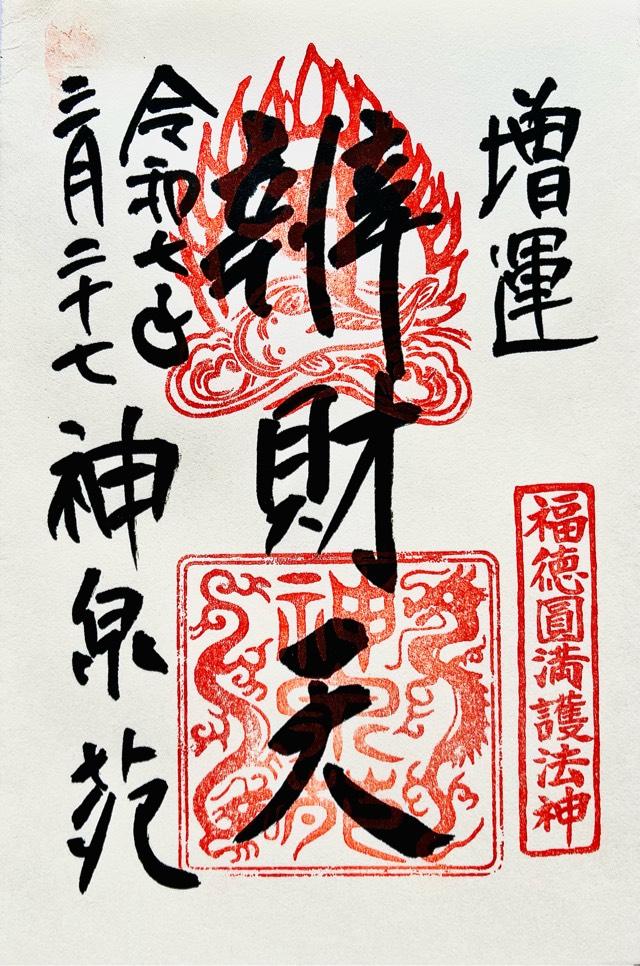 増運
福徳圓満護法神
辨財天
神泉苑
令和七年
二月二十七
神泉苑